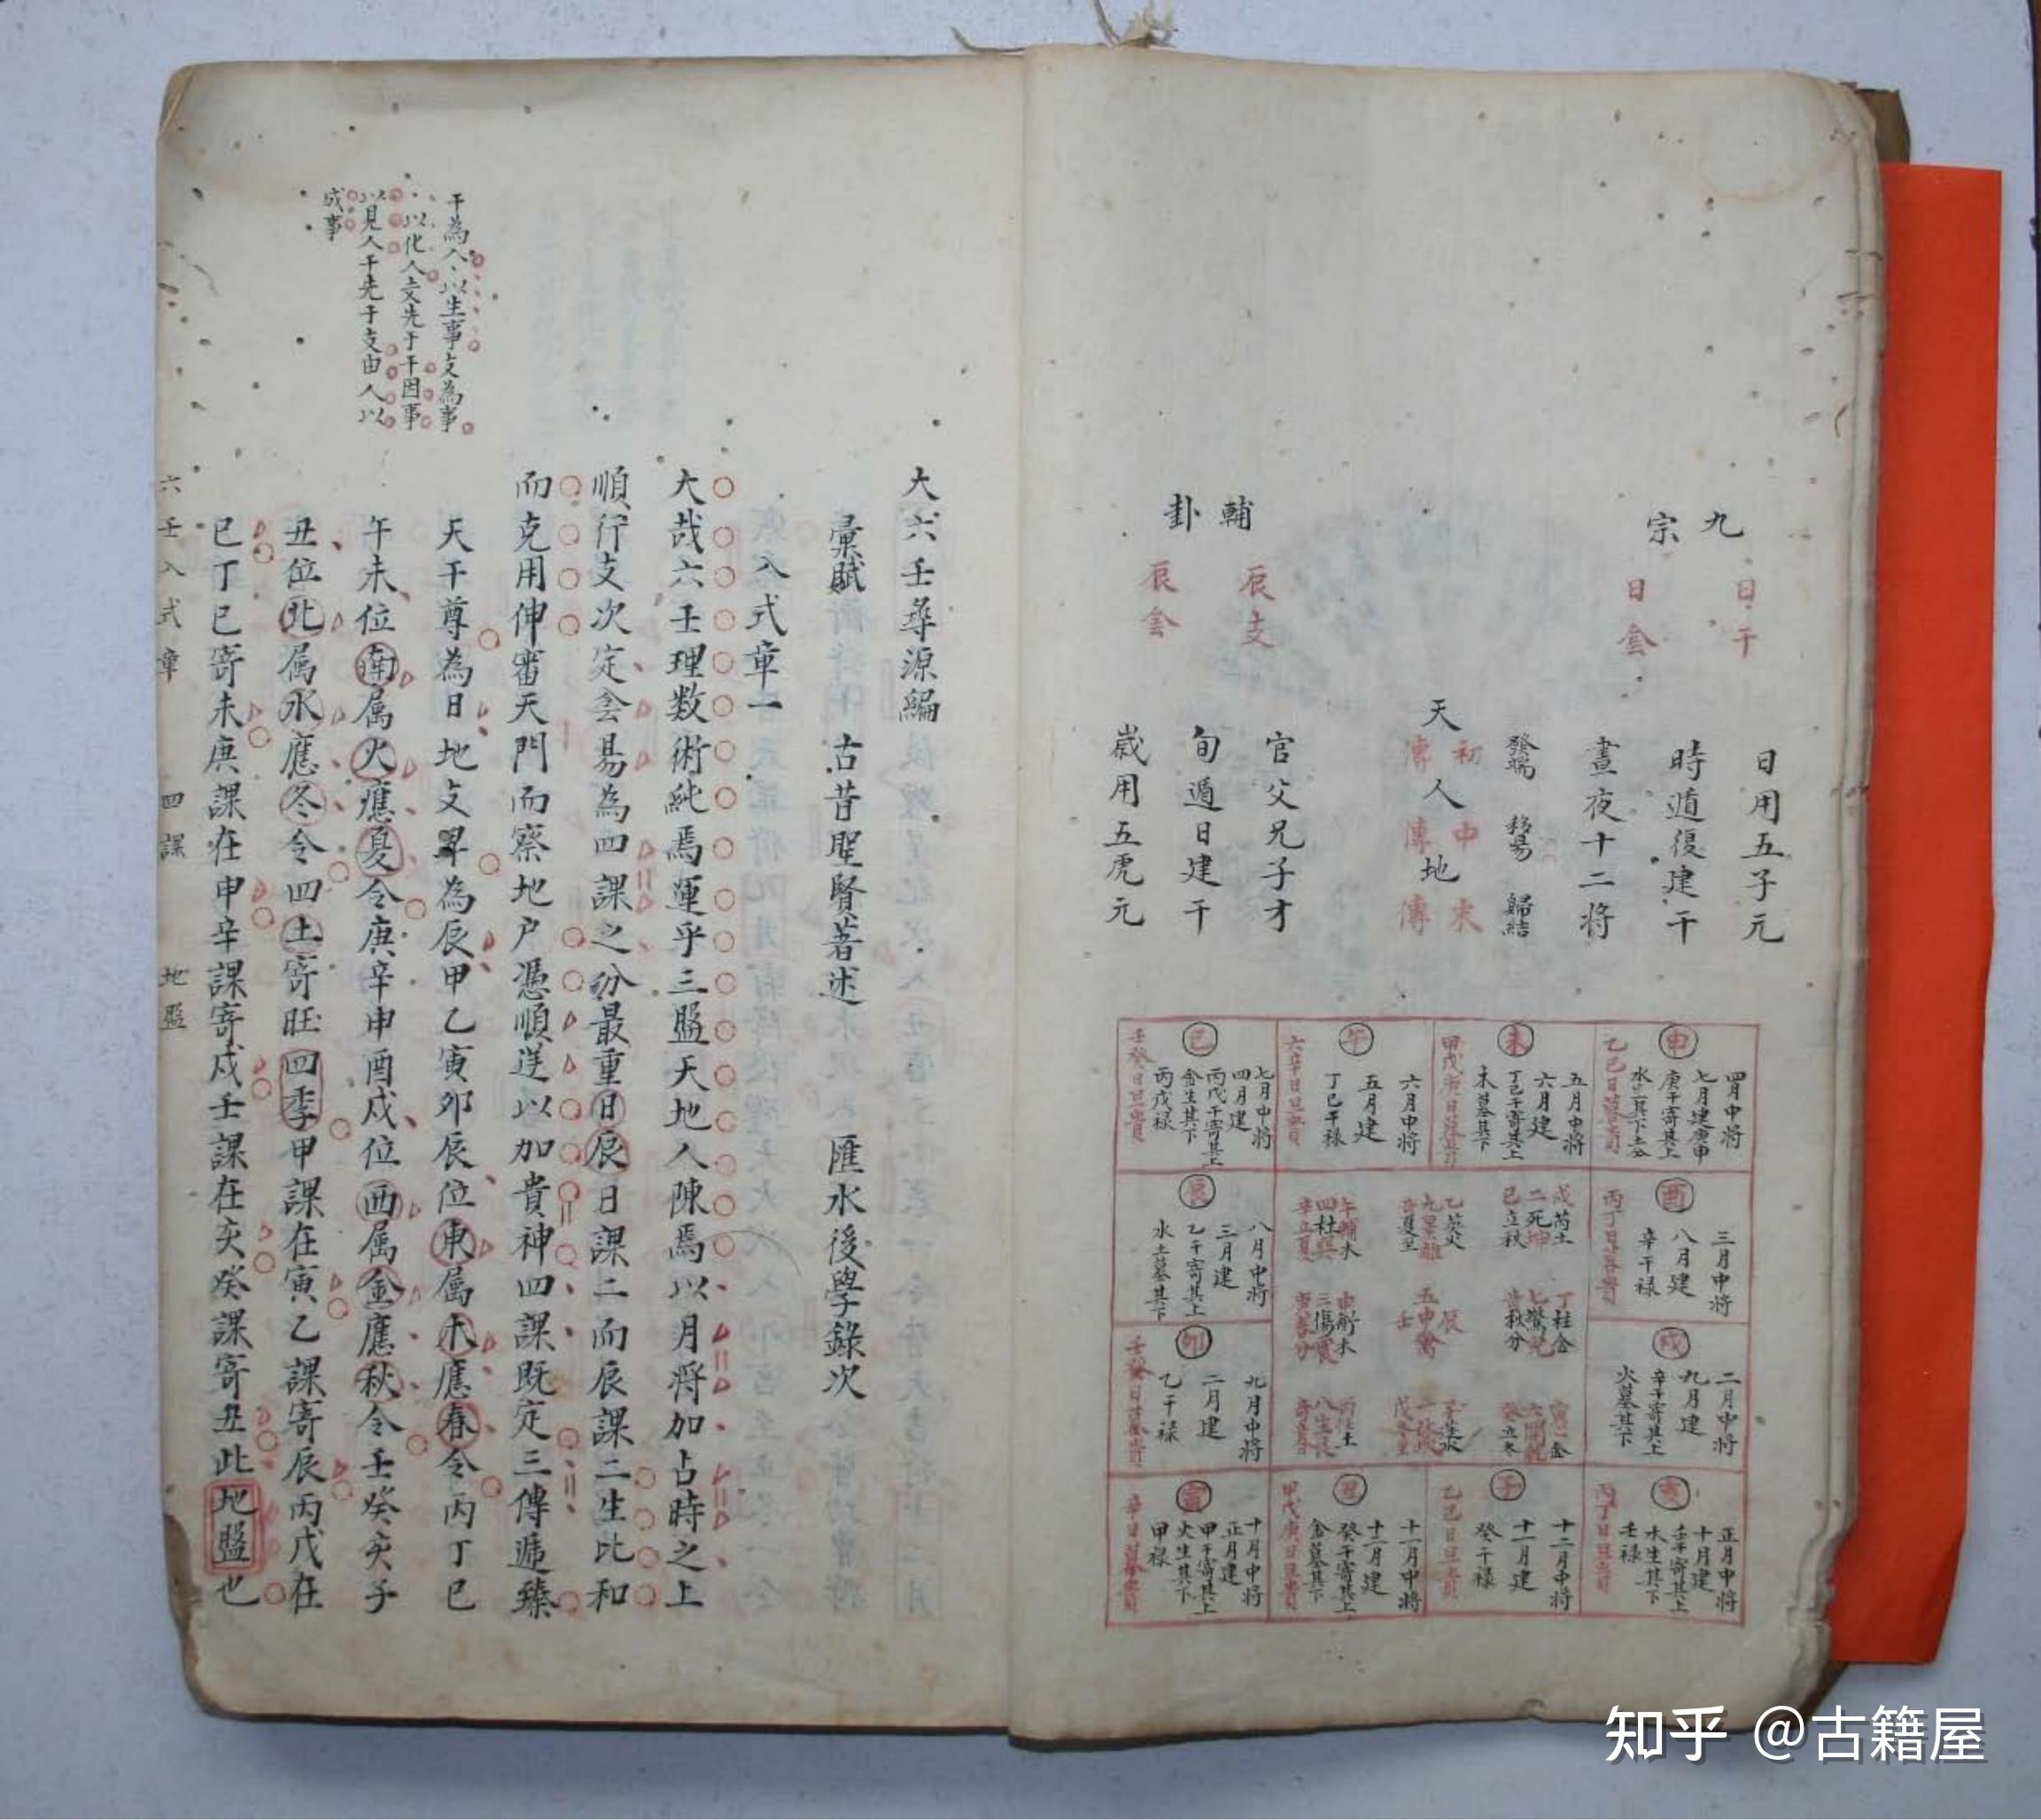 九宗
日干
日侌
輔卦
辰支
辰侌
日用五子元
時遁復建干
晝夜十二將
發端 移易 歸結
天人地
初傳
中傳
末傳
官父兄子才
旬遁日建干
歲用五虎元
申
四月中將
七月建庚申
庚干寄其上
未
五月中將
六月建
丁己干寄其上
木墓其下
午
六月中將
五月建
丁己干祿
六辛日旦貴
巳
七月中將
四月建
丙戊干寄其上
金生其下
丙戊祿
壬癸日旦貴
酉
三月中將
八月建
辛干祿
辰
八月中將
三月建
乙干寄其上
水土墓其下
戌
二月中將
九月建
辛干寄其上
火墓其下
卯
九月中將
二月建
乙干祿
亥
正月中將
十月建
壬干寄其上
木生其下
壬祿
丙丁日旦貴
子
十二月中將
十一月建
癸干祿
乙己日旦貴
丑
十一月中將
十二月建
癸干寄其上
金墓其下
甲戊庚日旦貴
寅
十月中將
正月建
甲干寄其上
火生其下
甲祿
大六壬尋源編
彙賦 古昔聖賢著述 匯水後學錄次
入式章一
大哉六壬理数術純焉運乎三盤天地人陳焉以月將加占時之上
順行支次定侌昜為四課之分最重日辰日課二而辰課二生比和
而克用伸審天門而察地户憑順逆以加貴神四課既定三傳遞臻
天干尊為日地支卑為辰甲乙寅卯辰位東属木應春令丙丁巳
午未位南属火應夏令庚辛申酉戌位西属金應秋令壬癸亥子
丑位北属水應冬令四土寄旺四季甲課在寅乙課寄辰丙戊在
巳丁己寄未庚課在申辛課寄戌壬課在亥癸課寄丑此地盤也
干為人以生事支為事
以化人支先于干因事
以見人干先于支由人以
成事
六壬入式章 四課 地盤
知乎 @古籍屋